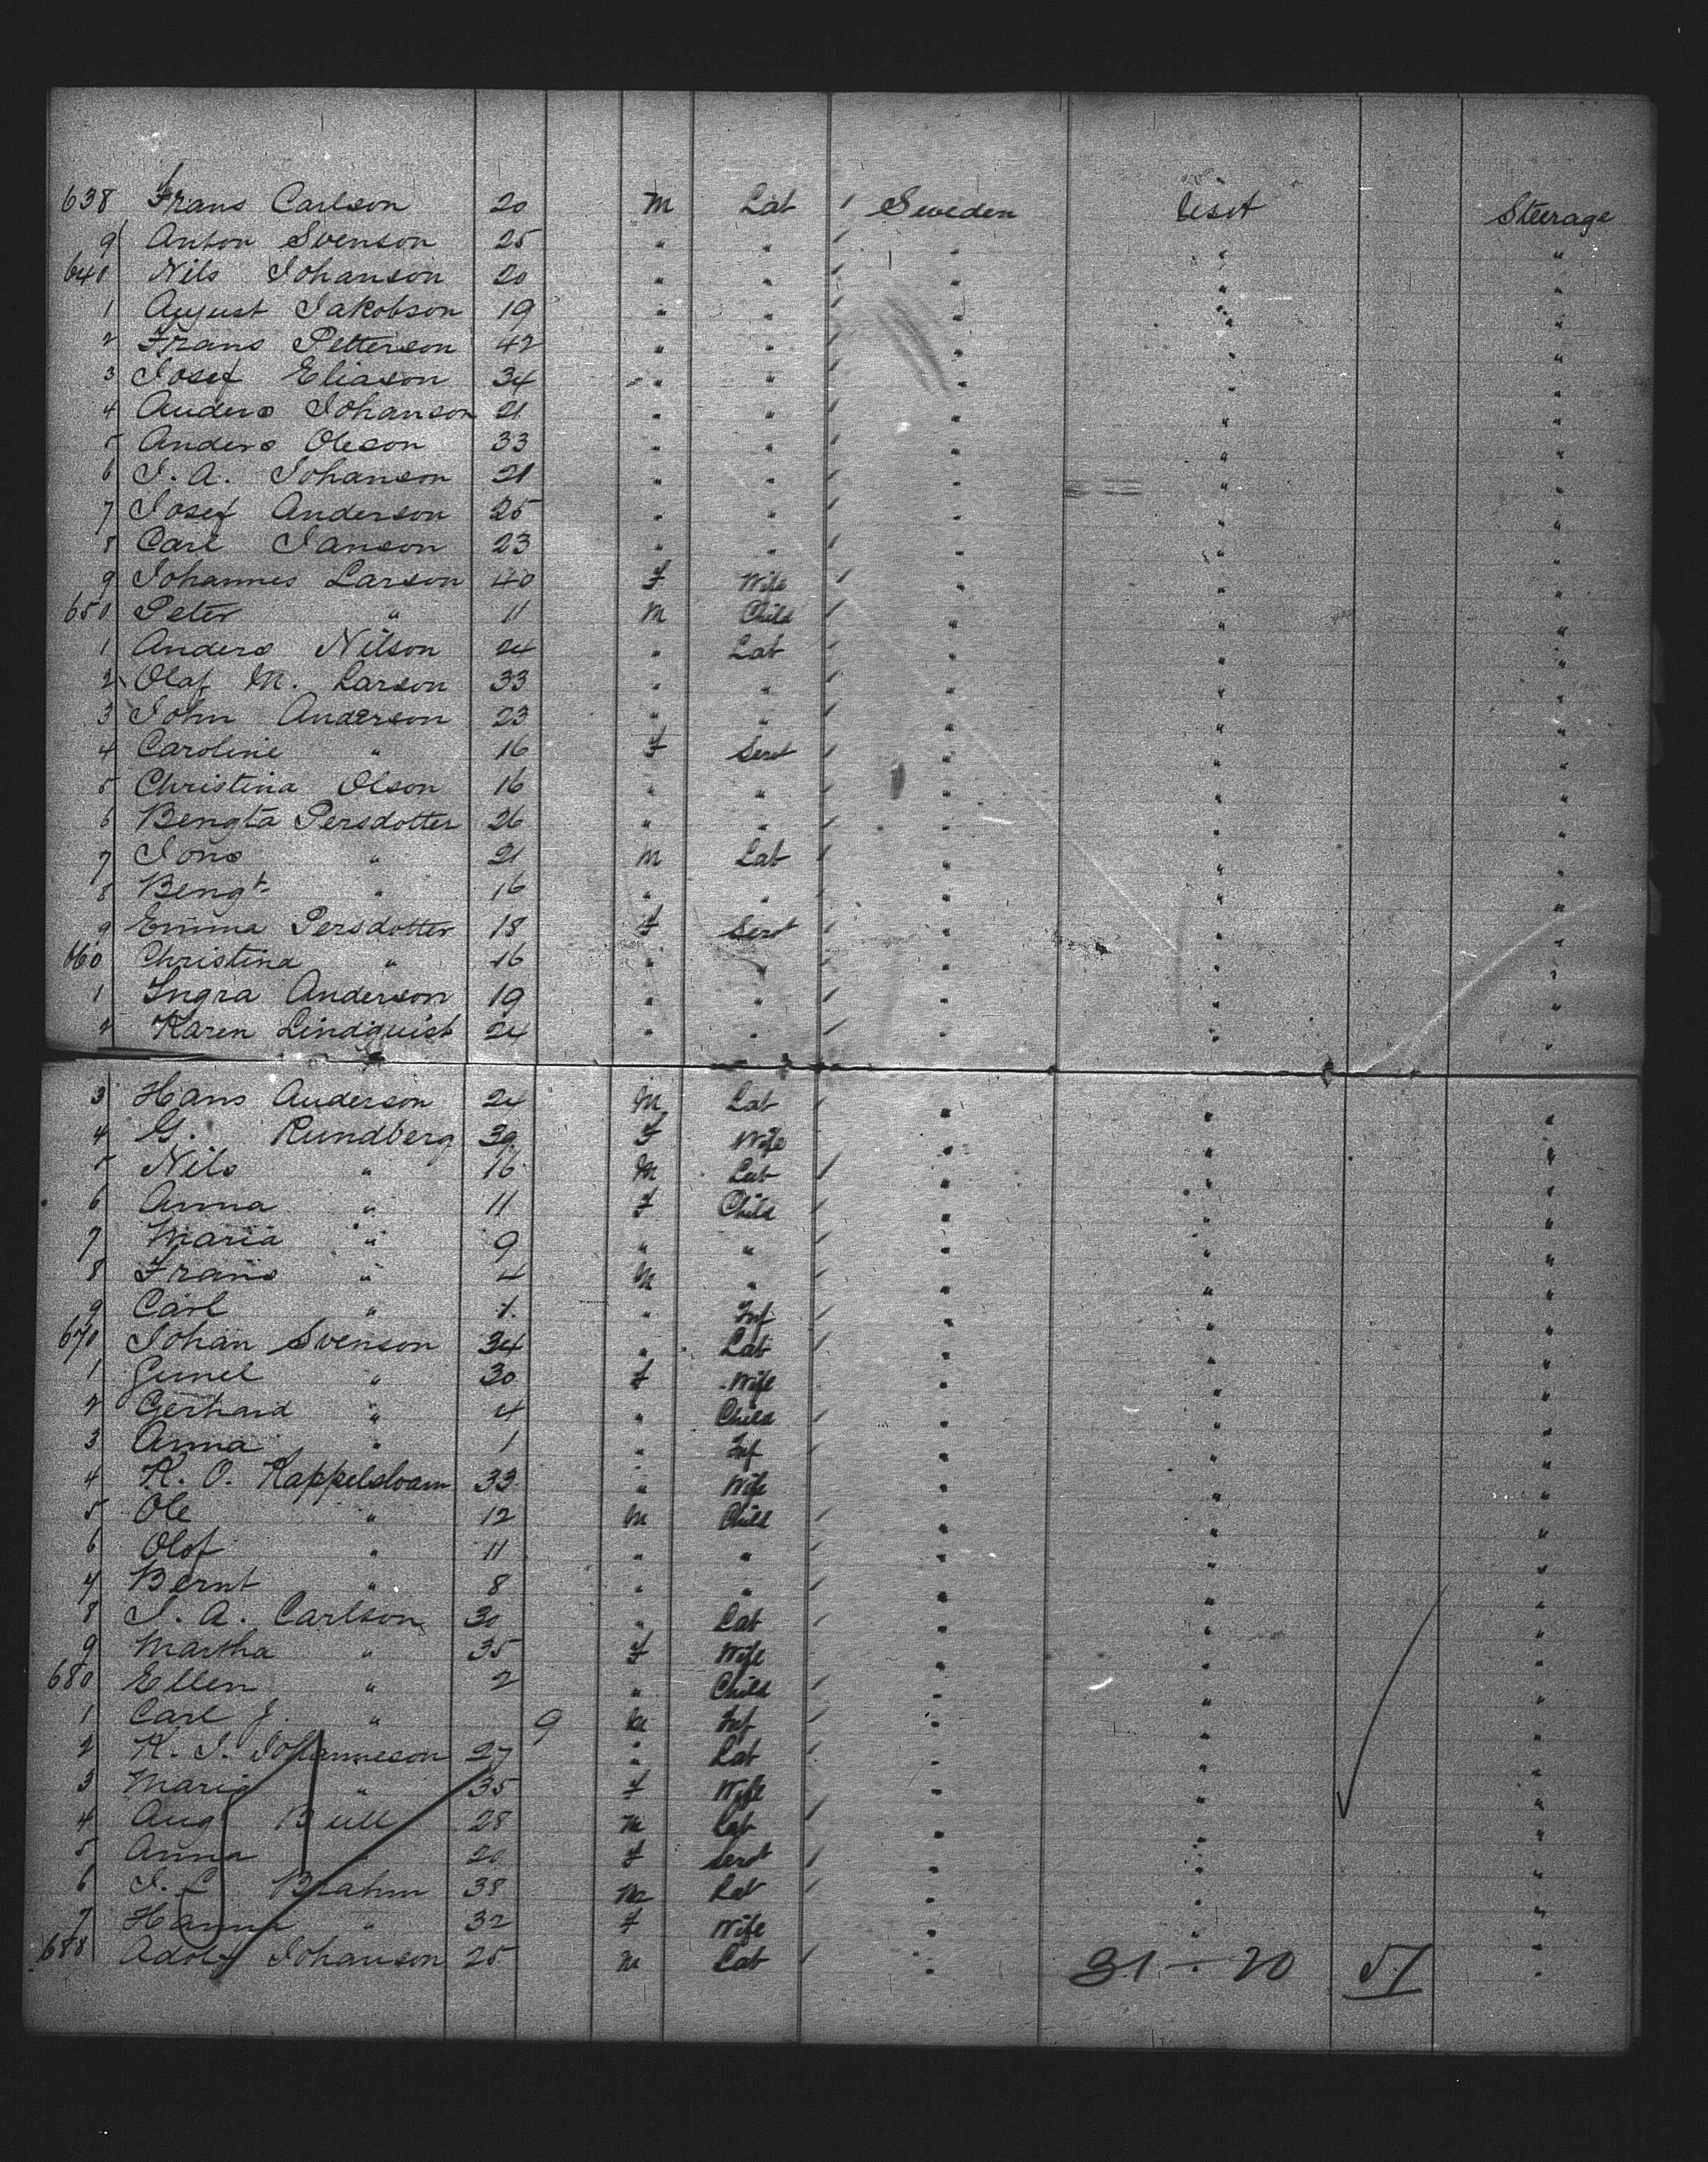 638 Frans Carlson 20 M Lab Sweden West Steerage
9 Anton Svenson 25 " " " " "
640 Nils Johanson 20 " " " " "
1 August Jakobson 19 " " " " "
2 Frans Petterson 42 " " " " "
3 Josef Eliason 34 " " " " "
4 Anders Johanson 21 " " " " "
5 Anders Oleson 33 " " " " "
6 J. A. Johanson 21 " " " " "
7 Josef Anderson 25 " " " " "
8 Carl Janson 23 " " " " "
9 Johannes Larson 40 F Wife " " "
650 Peter " 11 M Child " " "
1 Anders Nilson 24 " Lab " " "
2 Olaf M. Larson 33 " " " " "
3 John Anderson 23 " " " " "
4 Caroline " 16 F Servt " " "
5 Christina Olson 16 " " " " "
6 Bengta Persdotter 26 " " " " "
7 Jons " 21 M Lab " " "
8 Bengt " 16 " " " " "
9 Emma Persdotter 18 F Servt " " "
660 Christina " 16 " " " " "
1 Ingra Anderson 19 " " " " "
2 Karen Lindquist 24 " " " " "
3 Hans Anderson 24 M Lab " " "
4 G. Rundberg 39 F Wife " " "
5 Nils " 16 M Lab " " "
6 Anna " 11 F Child " " "
7 Maria " 9 " " " " "
8 Frans " 4 M " " " "
9 Carl " 1 " Inf " " "
670 Johan Svenson 34 " Lab " " "
1 Gunel " 30 F Wife " " "
2 Gerhard " 4 " Child " " "
3 Anna " 1 " Inf " " "
4 K. O. 33 " Wife " " "
5 Ole " 12 M Child " " "
6 Olof " 11 " " " " "
7 Bernt " 8 " " " " "
8 J. A. Carlson 30 " Lab " " "
9 Martha " 35 F Wife " " "
680 Ellen " 2 " Child " " "
1 Carl J. " 9 M Inf " " "
2 K. J. Johanneson 27 " Lab " " "
3 Maria " 35 F Wife " " "
4 Aug Bull 28 M Lab " " "
5 Anna " 20 F Servt " " "
6 J. L. Brahm 38 M Lab " " "
7 Hanna " 32 F Wife " " "
688 Adolf Johanson 25 M Lab " "
31 - 20 51